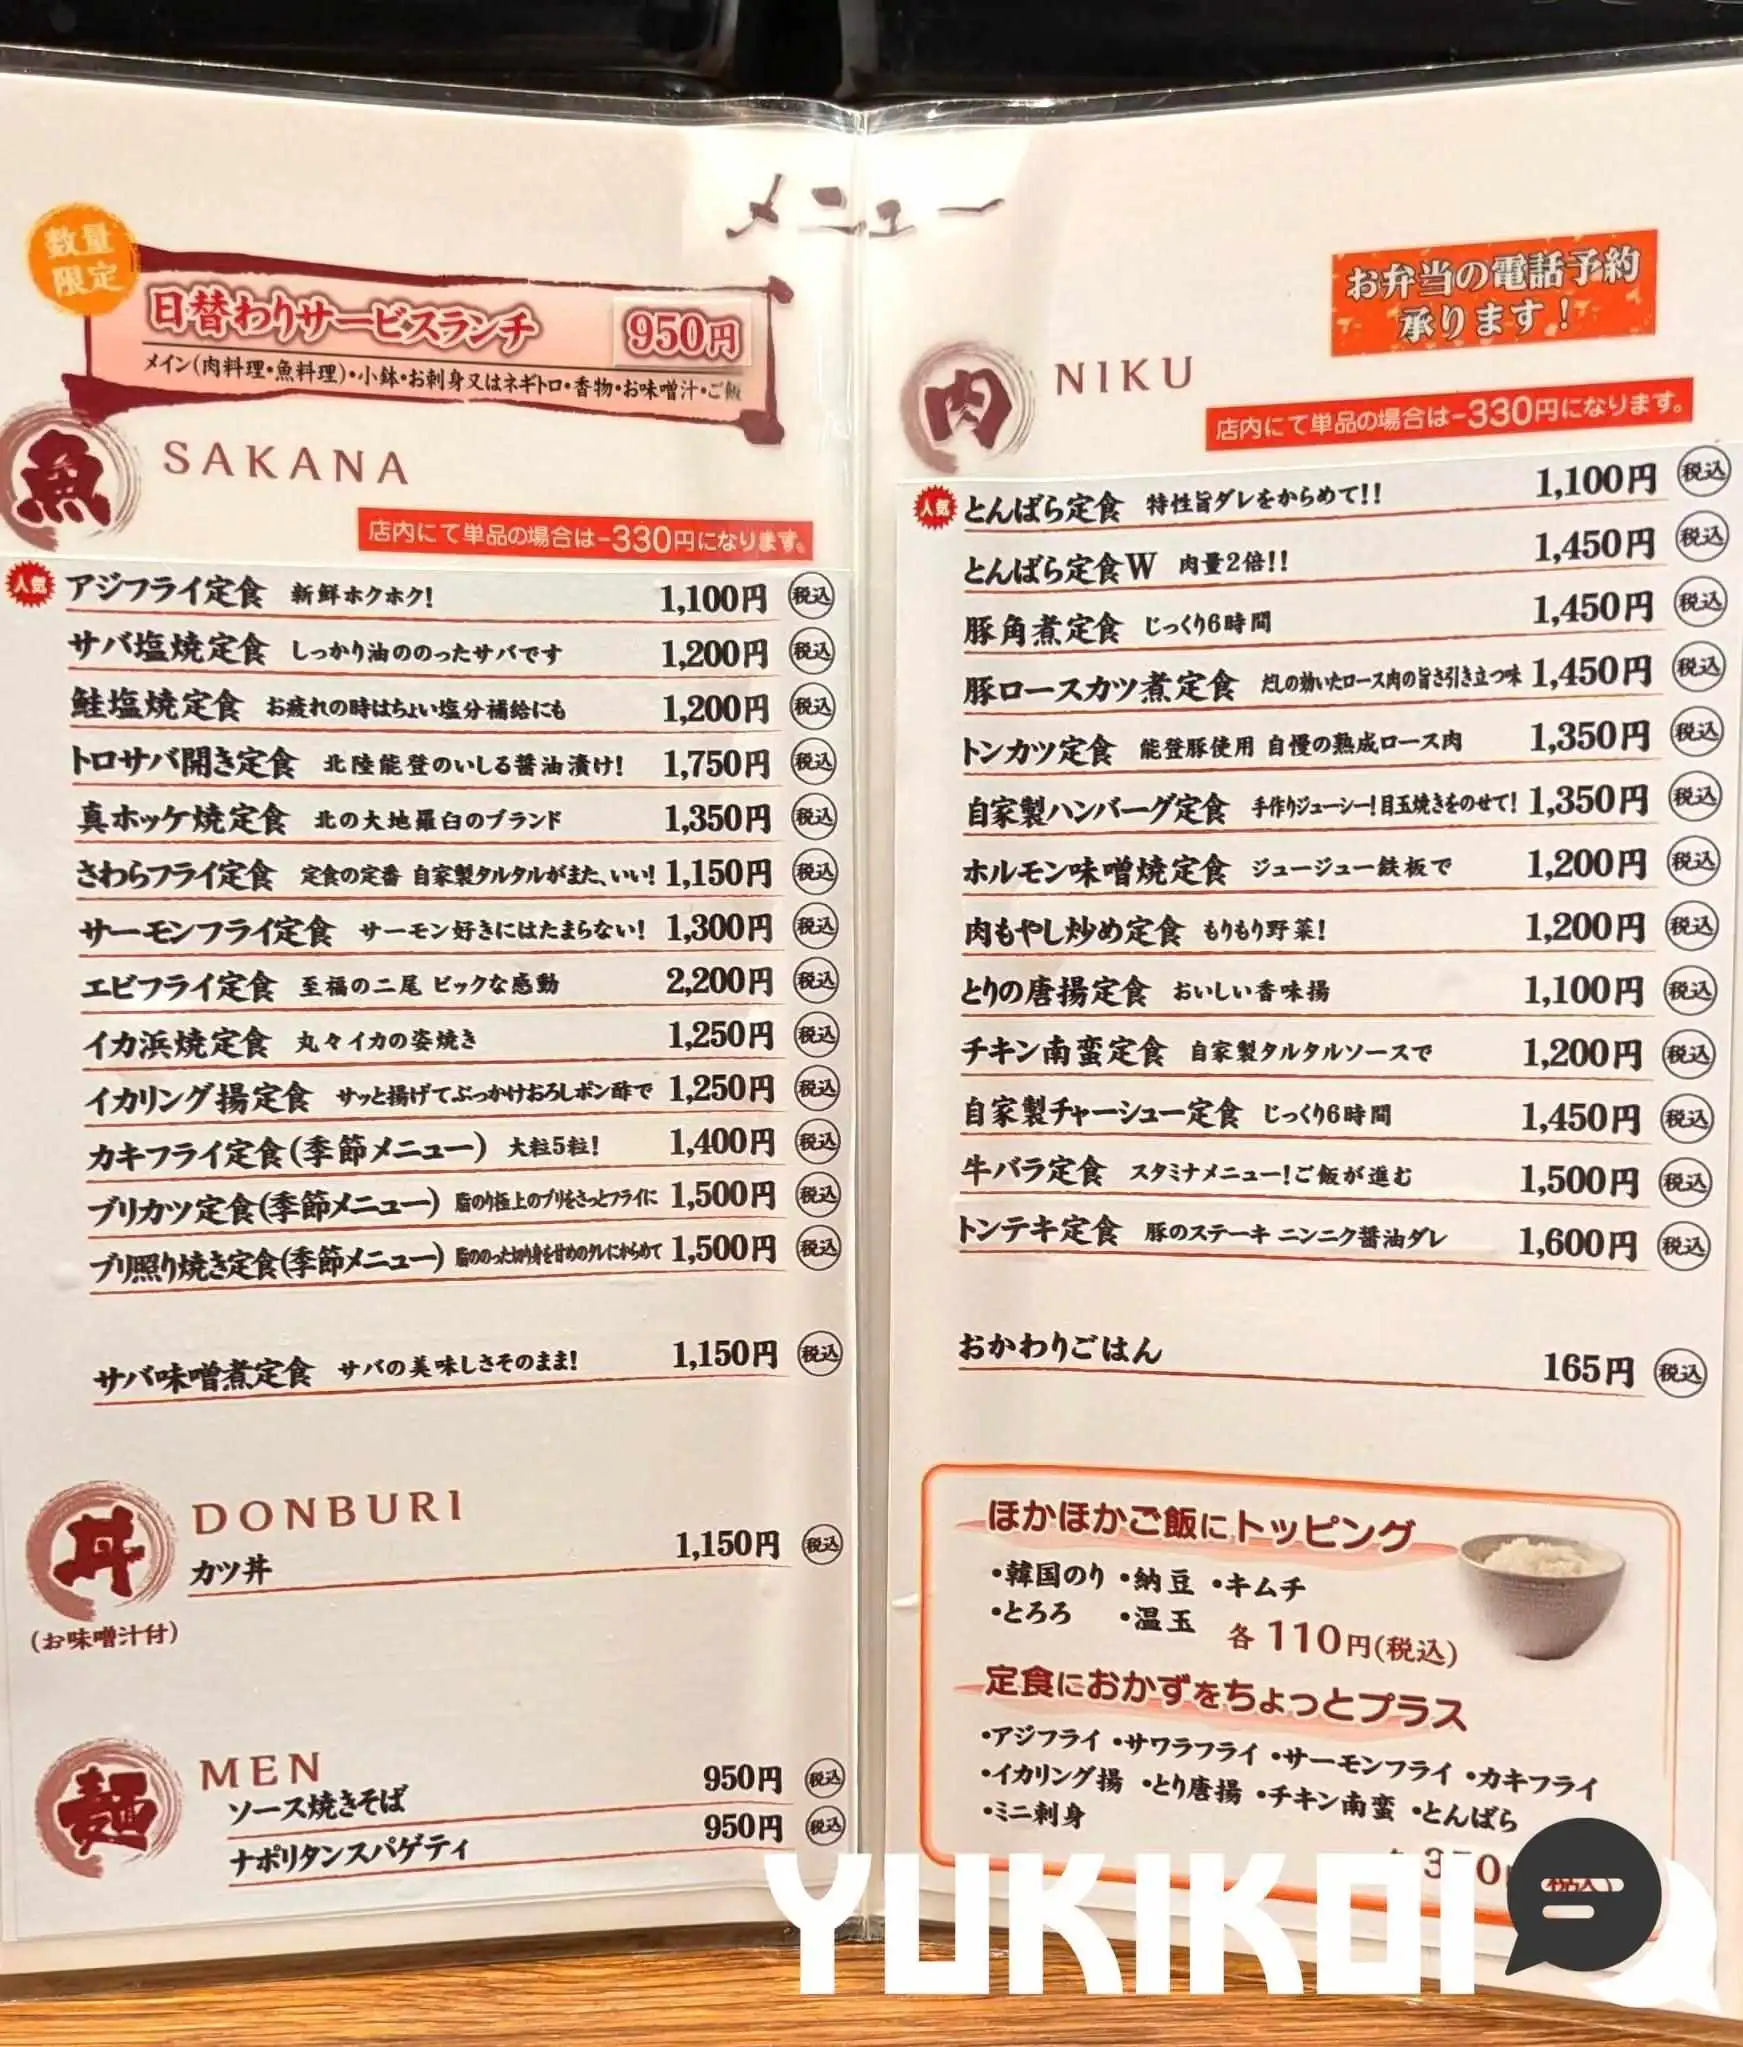 メニュー
数量
限定
日替わりサービスランチ 950円
メイン(肉料理・魚料理)・小鉢・お刺身又はネギトロ・香物・お味噌汁・ご飯
魚 SAKANA
店内にて単品の場合は-330円になります。
人気 アジフライ定食 新鮮ホクホク! 1,100円 税込
サバ塩焼定食 しっかり油ののったサバです 1,200円 税込
鮭塩焼定食 お疲れの時はちょい塩分補給にも 1,200円 税込
トロサバ開き定食 北陸能登のいしる醤油漬け! 1,750円 税込
真ホッケ焼定食 北の大地羅臼のブランド 1,350円 税込
さわらフライ定食 定食の定番 自家製タルタルがまた、いい! 1,150円 税込
サーモンフライ定食 サーモン好きにはたまらない! 1,300円 税込
エビフライ定食 至福の二尾 ビックな感動 2,200円 税込
イカ浜焼定食 丸々イカの姿焼き 1,250円 税込
イカリング揚定食 サッと揚げてぶっかけおろしポン酢で 1,250円 税込
カキフライ定食(季節メニュー) 大粒5粒! 1,400円 税込
ブリカツ定食(季節メニュー) 脂のり極上のブリをさっとフライに 1,500円 税込
ブリ照り焼き定食(季節メニュー) 脂ののった切り身を甘めのタレにからめて 1,500円 税込
サバ味噌煮定食 サバの美味しさそのまま! 1,150円 税込
丼 DONBURI
カツ丼 1,150円 税込
(お味噌汁付)
麺 MEN
ソース焼きそば 950円 税込
ナポリタンスパゲティ 950円 税込
お弁当の電話予約
承ります!
肉 NIKU
店内にて単品の場合は-330円になります。
人気 とんばら定食 特性旨ダレをからめて!! 1,100円 税込
とんばら定食W 肉量2倍!! 1,450円 税込
豚角煮定食 じっくり6時間 1,450円 税込
豚ロースカツ煮定食 だしの効いたロース肉の旨さ引き立つ味 1,450円 税込
トンカツ定食 能登豚使用 自慢の熟成ロース肉 1,350円 税込
自家製ハンバーグ定食 手作りジューシー!目玉焼きをのせて! 1,350円 税込
ホルモン味噌焼定食 ジュージュー鉄板で 1,200円 税込
肉もやし炒め定食 もりもり野菜! 1,200円 税込
とりの唐揚定食 おいしい香味揚 1,100円 税込
チキン南蛮定食 自家製タルタルソースで 1,200円 税込
自家製チャーシュー定食 じっくり6時間 1,450円 税込
牛バラ定食 スタミナメニュー!ご飯が進む 1,500円 税込
トンテキ定食 豚のステーキ ニンニク醤油ダレ 1,600円 税込
おかわりごはん 165円 税込
ほかほかご飯にトッピング
・韓国のり ・納豆 ・キムチ
・とろろ ・温玉 各110円(税込)
定食におかずをちょっとプラス
・アジフライ ・サワラフライ ・サーモンフライ ・カキフライ
・イカリング揚 ・とり唐揚 ・チキン南蛮 ・とんばら
・ミニ刺身
YUKIKOI